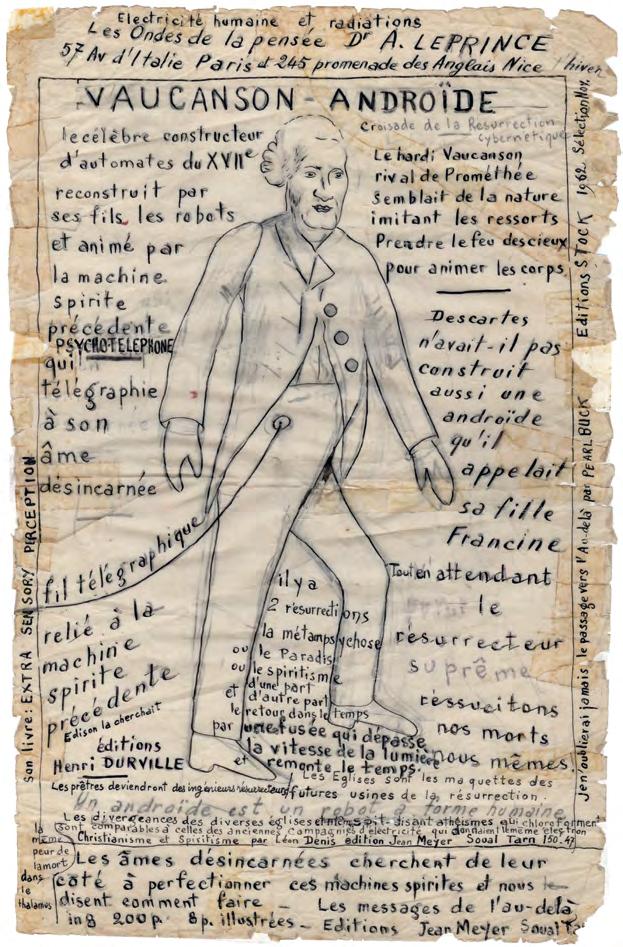 Electricité humaine et radiations
Les Ondes de la pensée Dr A. LEPRINCE
57 Av d'Italie Paris et 245 promenade des Anglais Nice l'hiver
VAUCANSON - ANDROÏDE
Croisade de la Resurrection
cybernetique
le célèbre constructeur
d'automates du XVIIe
reconstruit par
ses fils les robots
et animé par
la machine
spirite
précédente
PSYCHOTELEPHONE
qui
télégraphie
à son
âme
désincarnée
Le hardi Vaucanson
rival de Prométhée
Semblait de la nature
imitant les ressorts
Prendre le feu des cieux
pour animer les corps
Descartes
n'avait-il pas
construit
aussi une
androïde
qu'il
appelait
sa fille
Francine
Tout en attendant
le
résurrecteur
suprême
ressucitons
nos morts
nous mêmes
fil télégraphique
relié à la
machine
spirite
précédente
Edison la cherchait
éditions
Henri DURVILLE
il y a
2 résurrections
la métampsychose
ou le Paradis
ou le spiritisme
d'une part
et d'autre part
le retour dans le temps
par une fusée qui dépasse
la vitesse de la lumière
et remonte le temps.
Les Eglises sont les maquettes des
futures usines de la résurrection.
Les prêtres deviendront des ingénieurs résurrecteurs
Un androide est un robot à forme humaine
Les divergeances des diverses églises et même soit-disant athéismes qui chloroforment
sont comparables à celles des anciennes Campagnies d'électricité qui donnaient le même electron
Christianisme et Spiritisme par Léon Denis édition Jean Meyer Soual Tarn 150.47
la
même
peur de
la mort
dans
le
thalamus
Les âmes désincarnées cherchent de leur
côté à perfectionner ces machines spirites et nous
disent comment faire - Les messages de l'au-delà
in 8 200 p. 8 p. illustrées - Editions Jean Meyer Soual
Son livre: EXTRA SENSORY PERCEPTION
Je n'oublierai jamais le passage vers l'Au-delà par PEARL BUCK Editions STOCK 1962 Sélection Nov.